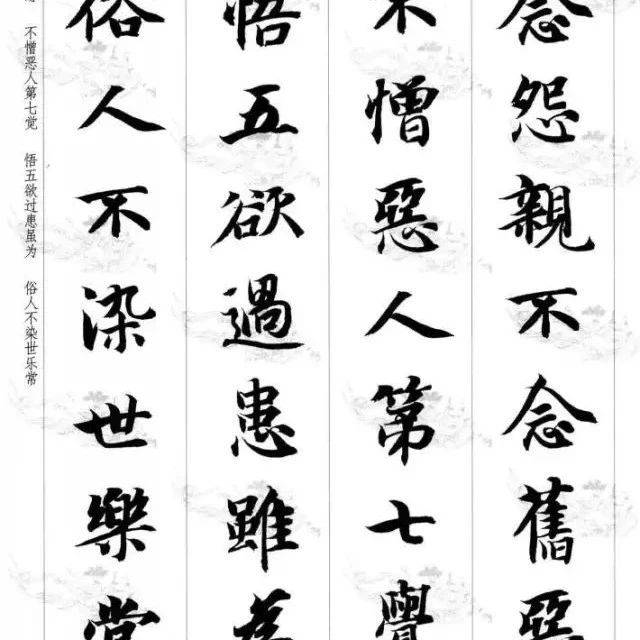 念怨親不念舊惡
不憎惡人第七覺
悟五欲過患雖為
俗人不染世樂常
不憎恶人第七觉 悟五欲过患虽为 俗人不染世乐常